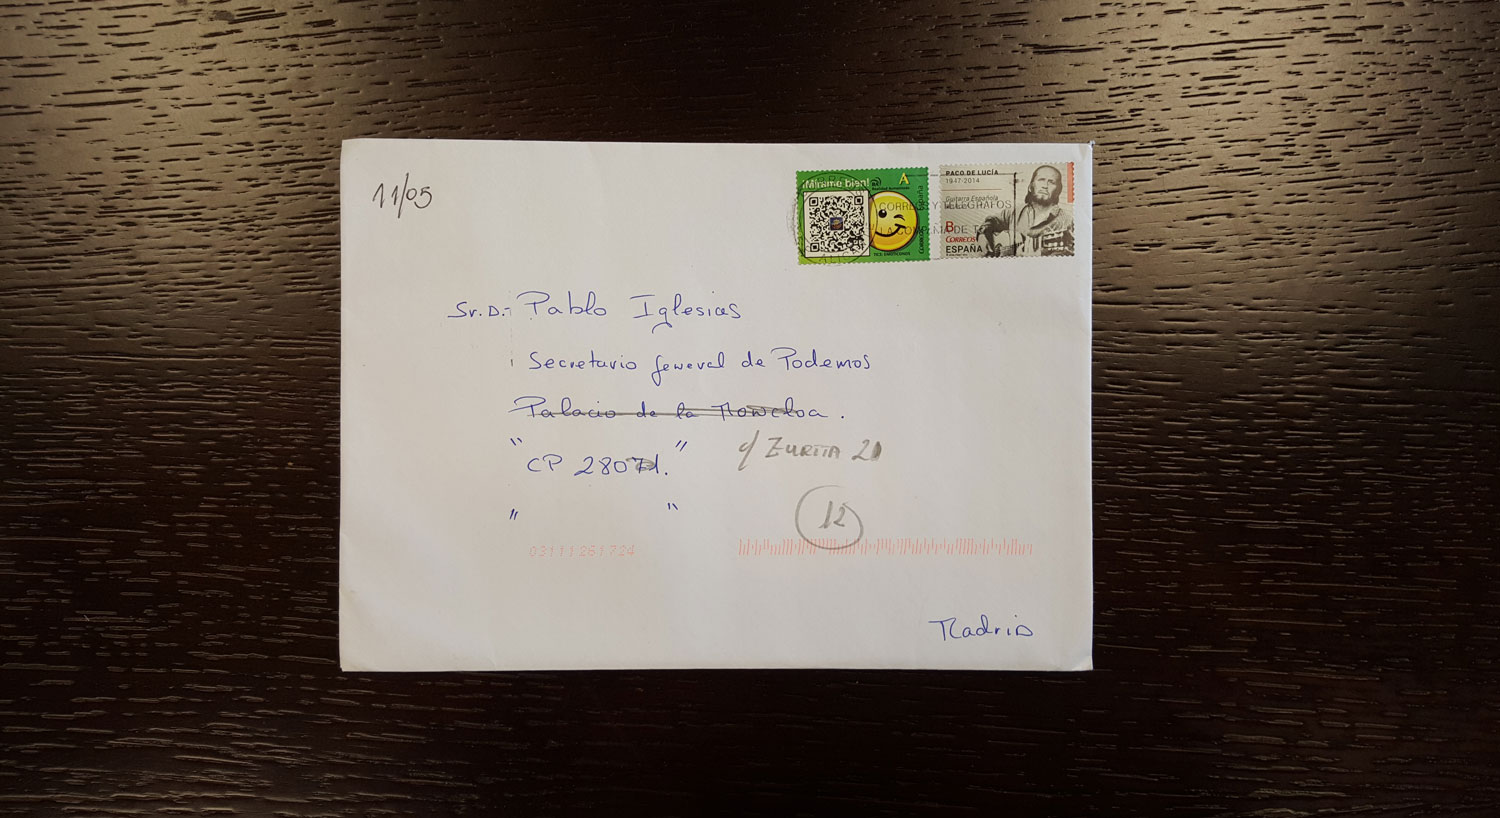 11/05
¡Mírame bien! A
España
CORREOS
TICS. EMOTICONOS
PACO DE LUCÍA
1947-2014
Guitarra Española
B
CORREOS
ESPAÑA
CORREOS Y TELÉGRAFOS
Sr. D. Pablo Iglesias
Secretario General de Podemos
Palacio de la Moncloa.
" "
CP 28071.
c/ ZURITA 21
" "
12
03111261724
Madrid